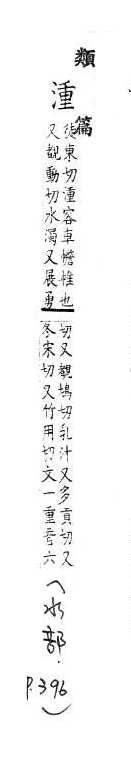 類篇
湩
徒東切湩容車幨帷也
又覩動切水濁又展勇
切又覩鳩切乳汁又多貢切又
冬宋切又竹用切文一重音六
(水部.
P.396)